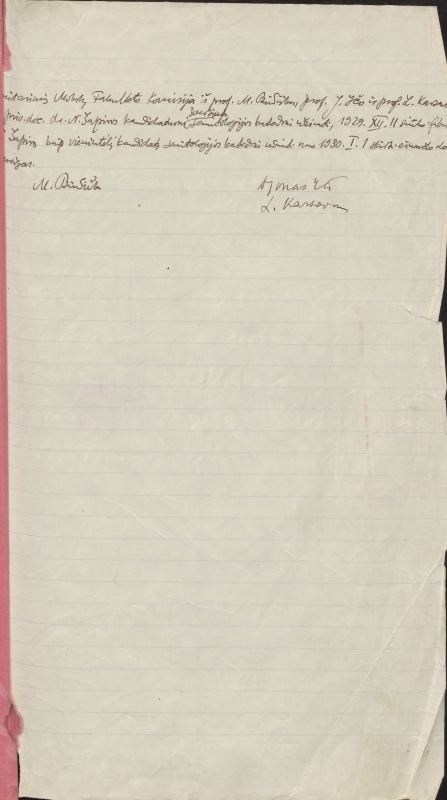 Mokslų Fakulteto Komisija iš prof. M. Biržiškos, prof. J. Yčo ir prof. L. Karsav
priv. doc. dr. N. Šapiro kandidatūrai Semitologijos katedrai užimti, 1929. XII. 11
Šapirą kaip vienintelį kandidatą Semitologijos katedrai užimti nuo 1930. I. 1
M. Biržiška
Dr Jonas Yčas
L. Karsavin